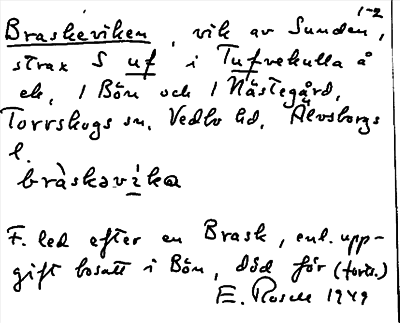 1-2
Braskeviken, vik av Sunden,
strax S uf i Tufvekulla å
ek, 1 Bön och 1 Nästegård,
Torrskogs sn. Vedbo hd, Älvsborgs
l.
bràskəvìka
F. led efter en Brask, enl. upp-
gift bosatt i Bön, död för (forts.)
E. Rosell 1949